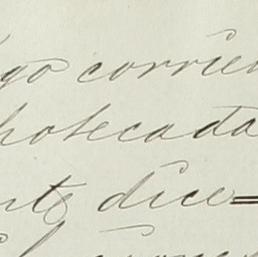 go corrien
hotecada
nte dice=